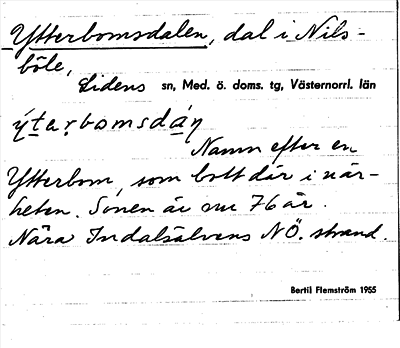 Ytterbomsdalen, dal i Nils-
böle,
Lidens sn, Med. ö. doms. tg, Västernorrl. län
ýtarbomsdáŋ
Namn efter en
Ytterbom, som bott där i när-
heten. Sonen är nu 76 år.
Nära Indalsälvens NÖ. strand.
Bertil Flemström 1955